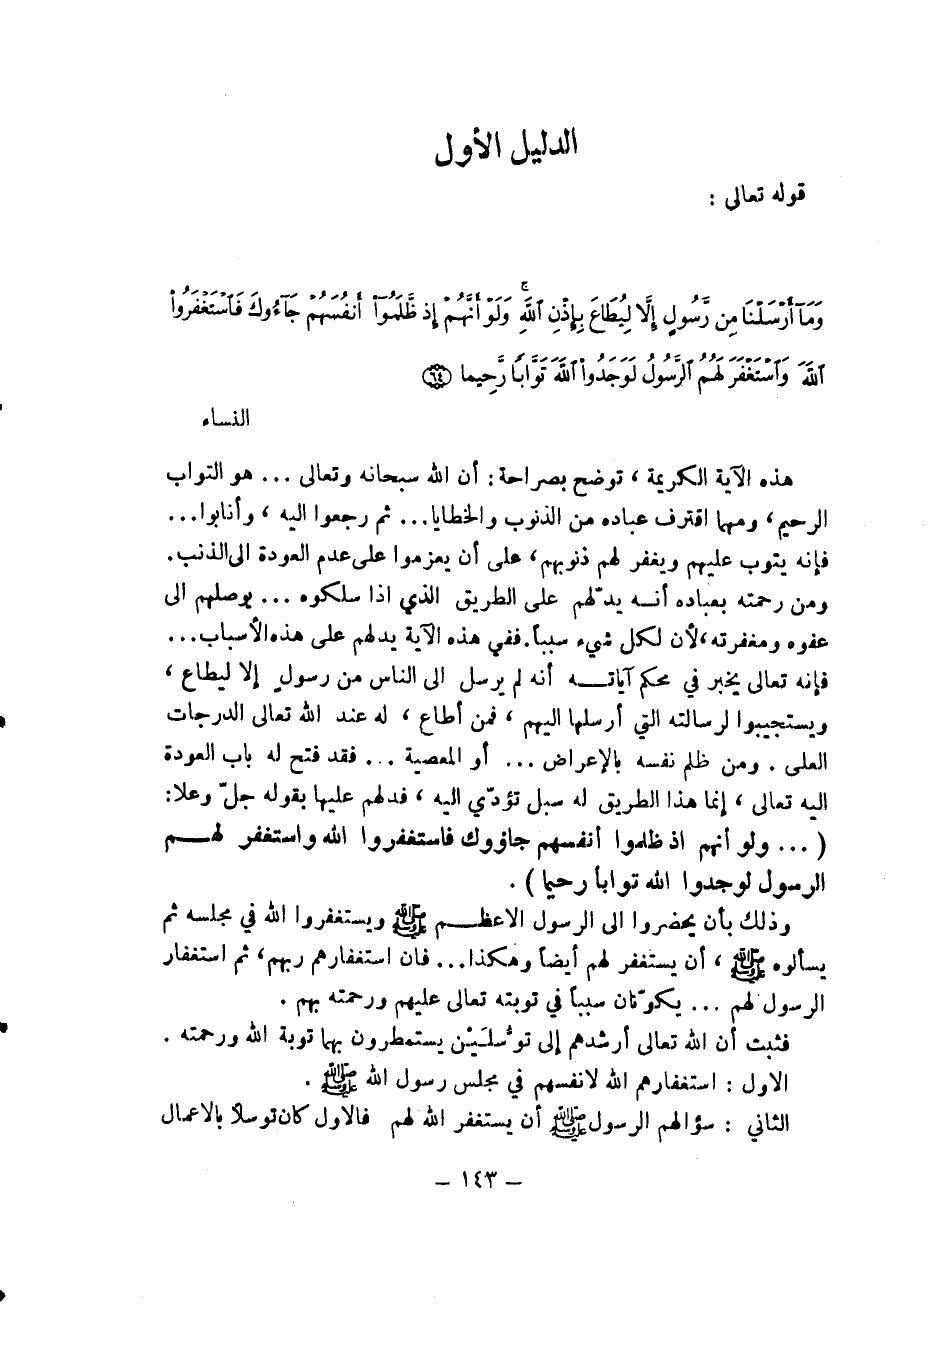 الدليل الأول
قوله تعالى :
وَمَآ أَرْسَلْنَا مِن رَّسُولٍ إِلَّا لِيُطَاعَ بِإِذْنِ ٱللَّهِۚ وَلَوْ أَنَّهُمْ إِذ ظَّلَمُوٓاْ أَنفُسَهُمْ جَآءُوكَ فَٱسْتَغْفَرُواْ
ٱللَّهَ وَٱسْتَغْفَرَ لَهُمُ ٱلرَّسُولُ لَوَجَدُواْ ٱللَّهَ تَوَّابًا رَّحِيمًا ٦٤
النساء
هذه الآية الكريمة ، توضح بصراحة: أن الله سبحانه وتعالى ... هو التواب
الرحيم، ومهما اقترف عباده من الذنوب والخطايا... ثم رجعوا اليه ، وأنابوا...
فإنه يتوب عليهم ويغفر لهم ذنوبهم، على أن يعزموا على عدم العودة الى الذنب.
ومن رحمته بعباده أنـــه يدلّهم على الطريق الذي اذا سلكوه ... يوصلهم الى
عفوه ومغفرته،لأن لكل شيء سبباً.ففي هذه الآية يدلهم على هذه الأسباب...
فإنه تعالى يخبر في محكم آياتـــه أنه لم يرسل الى الناس من رسولٍ إلا ليطاع ،
ويستجيبوا لرسالته التي أرسلها اليهم ، فمن أطاع ، له عند الله تعالى الدرجات
العلى . ومن ظلم نفسه بالإعراض ... أو المعصية ... فقد فتح له باب العودة
اليه تعالى ، إنما هذا الطريق له سبل تؤدّي اليه ، فدلهم عليها بقوله جلّ وعلا:
( ... ولو أنهم اذ ظلموا أنفسهم جاؤوك فاستغفروا الله واستغفر لهـــم
الرسول لوجدوا الله تواباً رحيما ) .
وذلك بأن يحضروا الى الرسول الاعظـــم ﷺ ويستغفروا الله في مجلسه ثم
يسألوه ﷺ ، أن يستغفر لهم أيضاً وهكذا... فان استغفارهم ربهم، ثم استغفار
الرسول لهم ... يكوّنان سبباً في توبته تعالى عليهم ورحمته بهم .
فثبت أن الله تعالى أرشدهم إلى توسُّلَيْن يستمطرون بهما توبة الله ورحمته .
الاول : استغفارهم الله لانفسهم في مجلس رسول الله ﷺ .
الثاني : سؤالهم الرسول ﷺ أن يستغفر الله لهم فالاول كان توسلاً بالاعمال
– ١٤٣ –